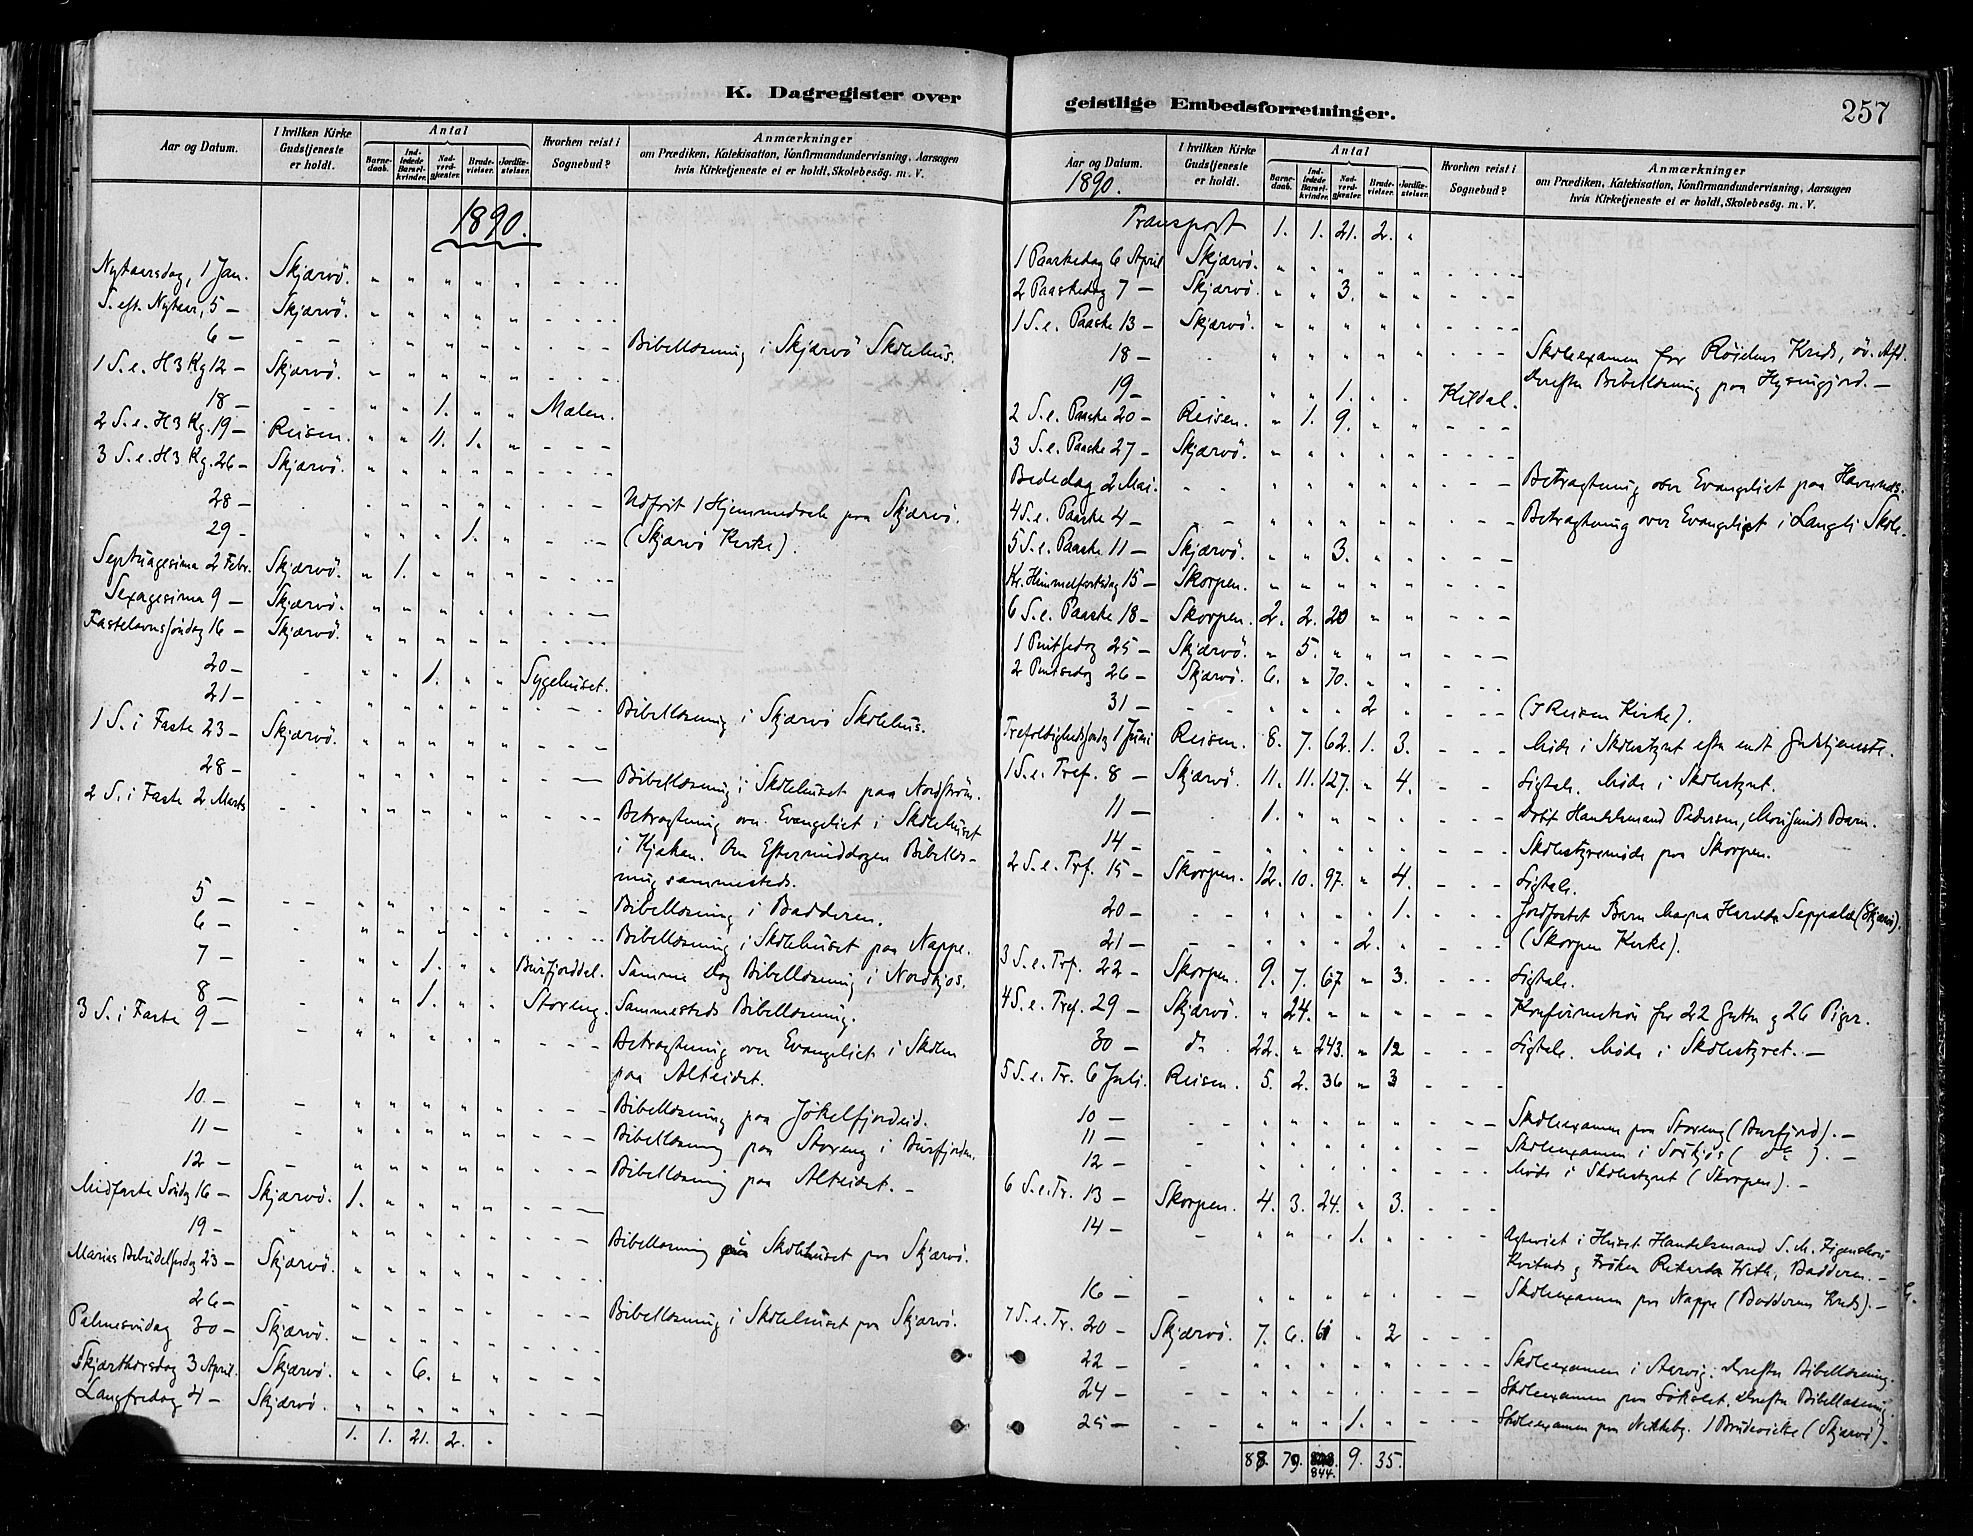 K. Dagregister over
Aar og Datum. I hvilken Kirke Gudstjeneste er holdt. Antal Barnedaab. Indledede Barselkvinder. Nadverdgjester. Brudevielser. Jordfæstelser. Hvorhen reist i Sognebud? Anmærkninger
om Prædiken, Katekisation, Konfirmandundervisning, Aarsagen
hvis Kirketjeneste ei er holdt, Skolebesøg. m. V.
1890.
Nytaarsdag, 1 Jan. Skjærvö. " " " " "
S. eft. Nytaar, 5 — Skjærvö. " " " " "
6 — " " " " " Bibellæsning i Skjærvö Skolehus.
1 S. e. H 3 Kg 12 — Skjærvö. " " " " "
18 — " " 1. " " Mælen.
2 S. e. H3 Kg. 19 — Reisen. " " 11. 1. "
3 S. e. H3 Kg. 26 — Skjærvö. " " " " "
28 — " " " " " Udført 1 Hjemmedaab paa Skjærvö.
29 — " " " 1. " (Skjærvö Kirke).
Septuagesima 2 Febr. Skjærvö. " 1. " " "
Sexagesima 9 — Skjærvö. " " " " "
Fastelavnssöndag 16 — Skjærvö. " " " " "
20 — " " 1. " " Sygehuset.
21 — " " " " " Bibellæsning i Skjærvö Skolehus.
1 S. i Faste 23 — Skjærvö. " " " " "
28 — " " " " " Bibellæsning i Skolehuset paa Nordström.
2 S. i Faste 2 Marts " " " " " Betragtning over Evangeliet i Skolehuset
i Kjækan. Om Eftermiddagen Bibellæs-
ning sammesteds.
5 — " " " " " Bibellæsning i Badderen.
6 — " " " " " Bibellæsning i Skolehuset paa Nappe.
7 — " " 1. " " Burfjorddal. Samme Dag Bibellæsning i Nordkjos.
8 — " " 1. " " Storeng. Sammesteds Bibellæsning.
3 S. i Faste 9 — " " " " " Betragtning over Evangeliet i Skolen
paa Alteidet.
10 — " " " " " Bibellæsning paa Jökelfjordeid.
11 — " " " " " Bibellæsning paa Storeng i Burfjorden.
12 — " " " " " Bibellæsning paa Alteidet. —
Midfaste Söndag 16 — Skjærvö. 1. " " " "
19 — " " " " " Bibellæsning i Skolehuset paa Skjærvö.
Marias Bebudelsesdag 23 — Skjærvö. " " " " "
26 — " " " " " Bibellæsning i Skolehuset paa Skjærvö.
Palmesöndag 30 — Skjærvö. " " " " "
Skjærthorsdag 3 April. Skjærvö. " " 6. " "
Langfredag 4 — Skjærvö. " " " " "
1. 1. 21. 2. "
geistlige Embedsforretninger. 257
Aar og Datum. I hvilken Kirke Gudstjeneste er holdt. Antal Barnedaab. Indledede Barselkvinder. Nadverdgjester. Brudevielser. Jordfæstelser. Hvorhen reist i Sognebud? Anmærkninger
om Prædiken, Katekisation, Konfirmandundervisning, Aarsagen
hvis Kirketjeneste ei er holdt, Skolebesøg. m. V.
1890.
Transport 1. 1. 21. 2. "
1 Paaskedag 6 April Skjærvö. " " " " "
2 Paaskedag 7 — Skjærvö. " " 3. " "
1 S. e. Paaske 13 — Skjærvö. " " " " "
18 — " " " " " Skoleexamen for Kreds, öv. Afd.
19 — " " 1. " " Kildal. Derefter Bibellæsning paa —
2 S. e. Paaske 20 — Reisen. " 1. 9. " "
3 S. e. Paaske 27 — Skjærvö. " " " " "
Bededag 2 Mai. " " " " " Betragtning over Evangeliet paa Havnnæs.
4 S. e. Paaske 4 — " " " " " Betragtning over Evangeliet i Langli Skole.
5 S. e. Paaske 11 — Skjærvö. " " 3. " "
Kr. Himmelfartsdag 15 — Skorpen. " " " " "
6 S. e. Paaske 18 — Skorpen. 2. 2. 20 " "
1 Pintsedag 25 — Skjærvö. " 5. " " "
2 Pintsedag 26 — Skjærvö. 6. " 70. " "
31 — " " " 2 " (I Reisen Kirke).
Trefoldighedssöndag 1 Juni Reisen. 8. 7. 62. 1. 3. Möde i Skolestyret efter endt Gudstjeneste.
1 S. e. Tref. 8 — Skjærvö. 11. 11. 127. " 4. Ligtale. Möde i Skolestyret.
11 — 1. " " " " Döbt Handelsmand Pedersen, Barn.
14 — " " " " " Skolestyremöde paa Skorpen.
2 S. e. Trf. 15 — Skorpen. 12. 10. 97. " 4. Ligtale.
20 — " " " " 1. Jordfæstet Barn Magna Seppalæ (Skjærvö).
21 — " " " 2. " (Skorpen Kirke).
3 S. e. Trf. 22 — Skorpen. 9. 7. 67 " 3. Ligtale.
4 S. e. Tref. 29 — Skjærvö. " 24. " " " Konfirmation for 22 Gutter og 26 Piger.
30 — do 22. " 243. " 12 Ligtale. Möde i Skolestyret. —
5 S. e. Tr. 6 Juli. Reisen. 5. 2. 36 " 3
10 — " " " " " Skoleexamen paa Storeng (Burfjord). —
11 — " " " " " Skoleexamen i Sörkjos ( do ). —
12 — " " " " " Möde i Skolestyret (Skorpen). —
6 S. e. Tr. 13 — Skorpen. 4. 3. 24. " 3.
14 — " " " 1. " Agteviet i Huset Handelsmand S. M. Figenschou
Kvitnæs og Fröken With, Badderen. —
16 — " " " " " Skoleexamen paa Nappe (Badderen Kreds). —
7 S. e. Tr. 20 — Skjærvö. 7. 6. 61 " 2
22 — " " " " " Skoleexamen i . Derefter Bibellæsning.
24 — " " " " " Skoleexamen paa . Derefter Bibellæsning.
25 — " " " 1. " Skoleexamen paa Nikkeby. 1 Brudevielse (Skjærvö).
88. 79. 844. 9. 35.